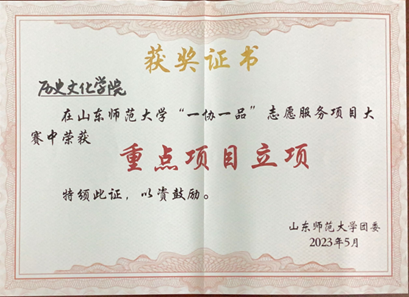 获奖证书
历史文化学院
在山东师范大学“一协一品”志愿服务项目大
赛中荣获
重点项目立项
特颁此证，以资鼓励。
山东师范大学团委
2023年5月